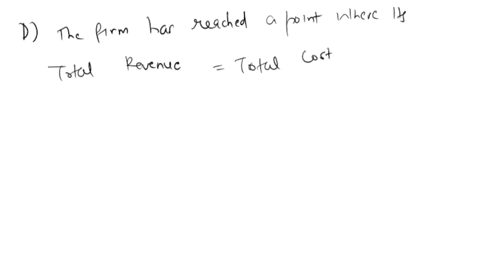 D) The firm has reached a point where its
Total Revenue = Total Cost